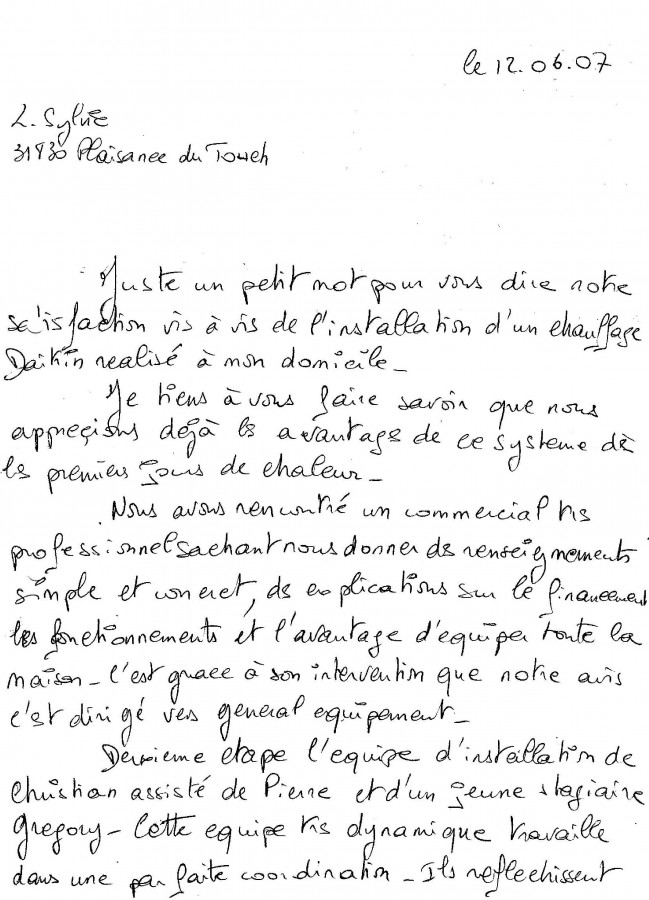 le 12.06.07
L. Sylvie
31830 Plaisance du Touch
Juste un petit mot pour vous dire notre
satisfaction vis à vis de l'installation d'un chauffage
Daikin realisé à mon domicile_
Je tiens à vous faire savoir que nous
appreçions déjà les avantage de ce systeme dès
les premiers jours de chaleur_
Nous avons rencontré un commercial très
professionnel sachant nous donner des renseignements
simple et concret, des explications sur le financement
les fonctionnements et l'avantage d'equiper toute la
maison_ C'est grace à son intervention que notre avis
c'est dirigé vers general equipement_
Deuxieme etape l'equipe d'installation de
Christian assisté de Pierre et d'un jeune stagiaire
Gregory_ Cette equipe très dynamique travaille
dans une parfaite coordination_ Ils reflechissent